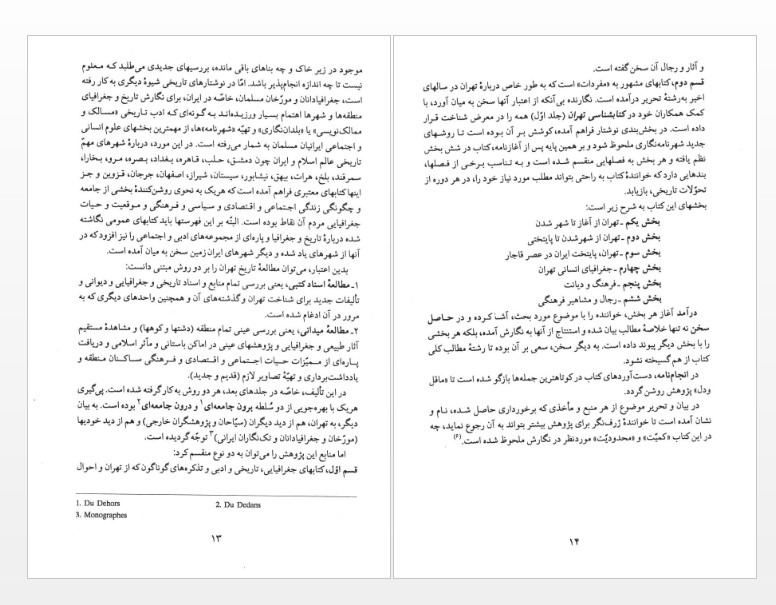 موجود در زیر خاک و چه بناهای باقی مانده، بررسیهای جدیدی می‌طلبد که معلوم
نیست تا چه اندازه انجام‌پذیر باشد. امّا در نوشتارهای تاریخی شیوهٔ دیگری به کار رفته
است، جغرافیادانان و مورّخان مسلمان، خاصّه در ایران، برای نگارش تاریخ و جغرافیای
منطقه‌ها و شهرها اهتمام بسیار ورزیده‌اند به گونه‌ای که ادب تاریخی «مسالک و
ممالک‌نویسی» یا «بلدان‌نگاری» و تهیّه «شهرنامه‌ها»، از مهمترین بخشهای علوم انسانی
و اجتماعی ایرانیان مسلمان به شمار می‌رفته است. در این مورد، دربارهٔ شهرهای مهمّ
تاریخی عالم اسلام و ایران چون دمشق، حلب، قاهره، بغداد، بصره، مرو، بخارا،
سمرقند، بلخ، هرات، بیهق، نیشابور، سیستان، شیراز، اصفهان، جرجان، قزوین و جز
اینها کتابهای معتبری فراهم آمده است که هریک به نحوی روشن‌کنندهٔ بخشی از جامعه
و چگونگی زندگی اجتماعی و اقتصادی و سیاسی و فرهنگی و موقعیت و حیات
جغرافیایی مردم آن نقاط بوده است. البتّه بر این فهرستها باید کتابهای عمومی نگاشته
شده دربارهٔ تاریخ و جغرافیا و پاره‌ای از مجموعه‌های ادبی و اجتماعی را نیز افزود که در
آنها از شهرهای یاد شده و دیگر شهرهای ایران‌زمین سخن به میان آمده است.
بدین اعتبار، می‌توان مطالعهٔ تاریخ تهران را بر دو روش مبتنی دانست:
۱ـ مطالعهٔ اسناد کتبی، یعنی بررسی تمام منابع و اسناد تاریخی و جغرافیایی و دیوانی و
تألیفات جدید برای شناخت تهران و گذشته‌های آن و همچنین واحدهای دیگری که به
مرور در آن ادغام شده است.
۲ـ مطالعهٔ میدانی، یعنی بررسی عینی تمام منطقه (دشتها و کوهها) و مشاهدهٔ مستقیم
آثار طبیعی و جغرافیایی و پژوهشهای عینی در اماکن باستانی و مآثر اسلامی و دریافت
پاره‌ای از ممیّزات حیات اجتماعی و اقتصادی و فرهنگی ساکنان منطقه و
یادداشت‌برداری و تهیّهٔ تصاویر لازم (قدیم و جدید).
در این تألیف، خاصّه در جلدهای بعد، هر دو روش به کار گرفته شده است. پی‌گیری
هریک با بهره‌جویی از دو سُلطه برون جامعه‌ای۱ و درون جامعه‌ای۲ بوده است. به بیان
دیگر، به تهران، هم از دید دیگران (سیّاحان و پژوهشگران خارجی) و هم از دید خودیها
(مورّخان و جغرافیادانان و تک‌نگاران ایرانی)۳ توجّه گردیده است.
اما منابع این پژوهش را می‌توان به دو نوع منقسم کرد:
قسم اوّل، کتابهای جغرافیایی، تاریخی و ادبی و تذکره‌های گوناگون که از تهران و احوال
1. Du Dehors
2. Du Dedans
3. Monographes
۱۳
و آثار و رجال آن سخن گفته است.
قسم دوم، کتابهای مشهور به «مفردات» است که به طور خاص دربارهٔ تهران در سالهای
اخیر به‌رشتهٔ تحریر درآمده است. نگارنده بی‌آنکه از اعتبار آنها سخن به میان آورد، با
کمک همکاران خود در کتابشناسی تهران (جلد اوّل) همه را در معرض شناخت قرار
داده است. در بخش‌بندی نوشتار فراهم آمده، کوشش بر آن بوده است تا روشهای
جدید شهرنامه‌نگاری ملحوظ شود و بر همین پایه پس از آغازنامه، کتاب در شش بخش
نظم یافته و هر بخش به فصلهایی منقسم شده است و به تناسب برخی از فصلها،
بندهایی دارد که خوانندهٔ کتاب به راحتی بتواند مطلب مورد نیاز خود را، در هر دوره از
تحوّلات تاریخی، بازیابد.
بخشهای این کتاب به شرح زیر است:
بخش یکم ـ تهران از آغاز تا شهر شدن
بخش دوم ـ تهران از شهرشدن تا پایتختی
بخش سوم ـ تهران، پایتخت ایران در عصر قاجار
بخش چهارم ـ جغرافیای انسانی تهران
بخش پنجم ـ فرهنگ و دیانت
بخش ششم ـ رجال و مشاهیر فرهنگی
درآمد آغاز هر بخش، خواننده را با موضوع مورد بحث، آشنا کرده و در حاصل
سخن نه تنها خلاصهٔ مطالب بیان شده و استنتاج از آنها به نگارش آمده، بلکه هر بخشی
را با بخش دیگر پیوند داده است. به دیگر سخن، سعی بر آن بوده تا رشتهٔ مطالب کلی
کتاب از هم گسیخته نشود.
در انجام‌نامه، دست‌آوردهای کتاب در کوتاهترین جمله‌ها بازگو شده است تا «ماقل
ودل» پژوهش روشن گردد.
در بیان و تحریر موضوع از هر منبع و مأخذی که برخورداری حاصل شده، نام و
نشان آمده است تا خوانندهٔ ژرف‌نگر برای پژوهش بیشتر بتواند به آن رجوع نماید، چه
در این کتاب «کمیّت» و «محدودیّت» موردنظر در نگارش ملحوظ شده است.(۶)
۱۴